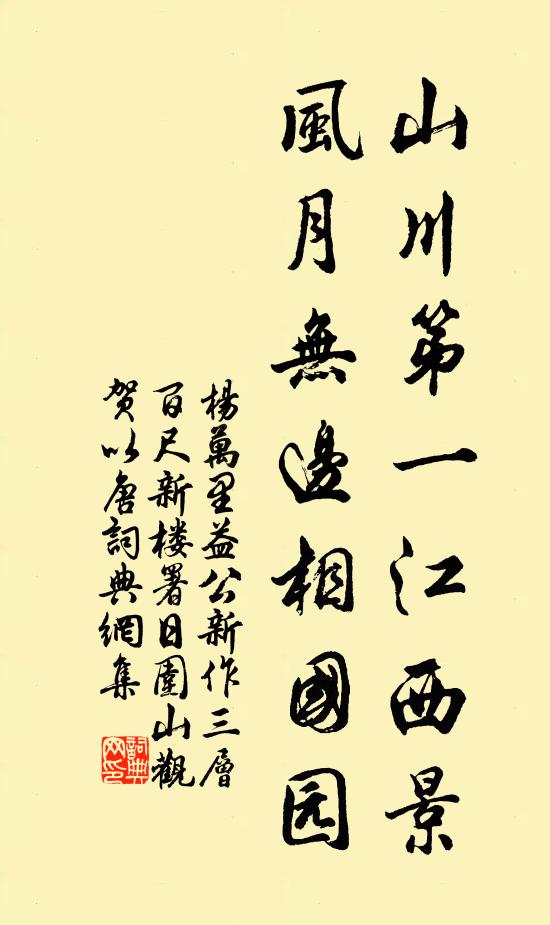 山川第一江西景
風月無邊相國园
楊萬里益公新作三層
百尺新楼署日圍山觀
賀以唐詞典網集
詞典
网印